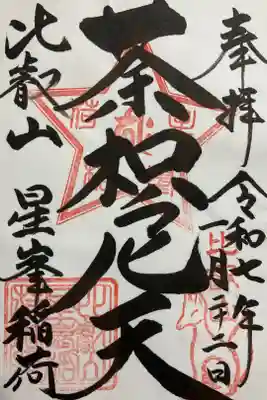 奉拝
令和七年
一月二十二日
荼枳尼天
比叡山
星峯稲荷